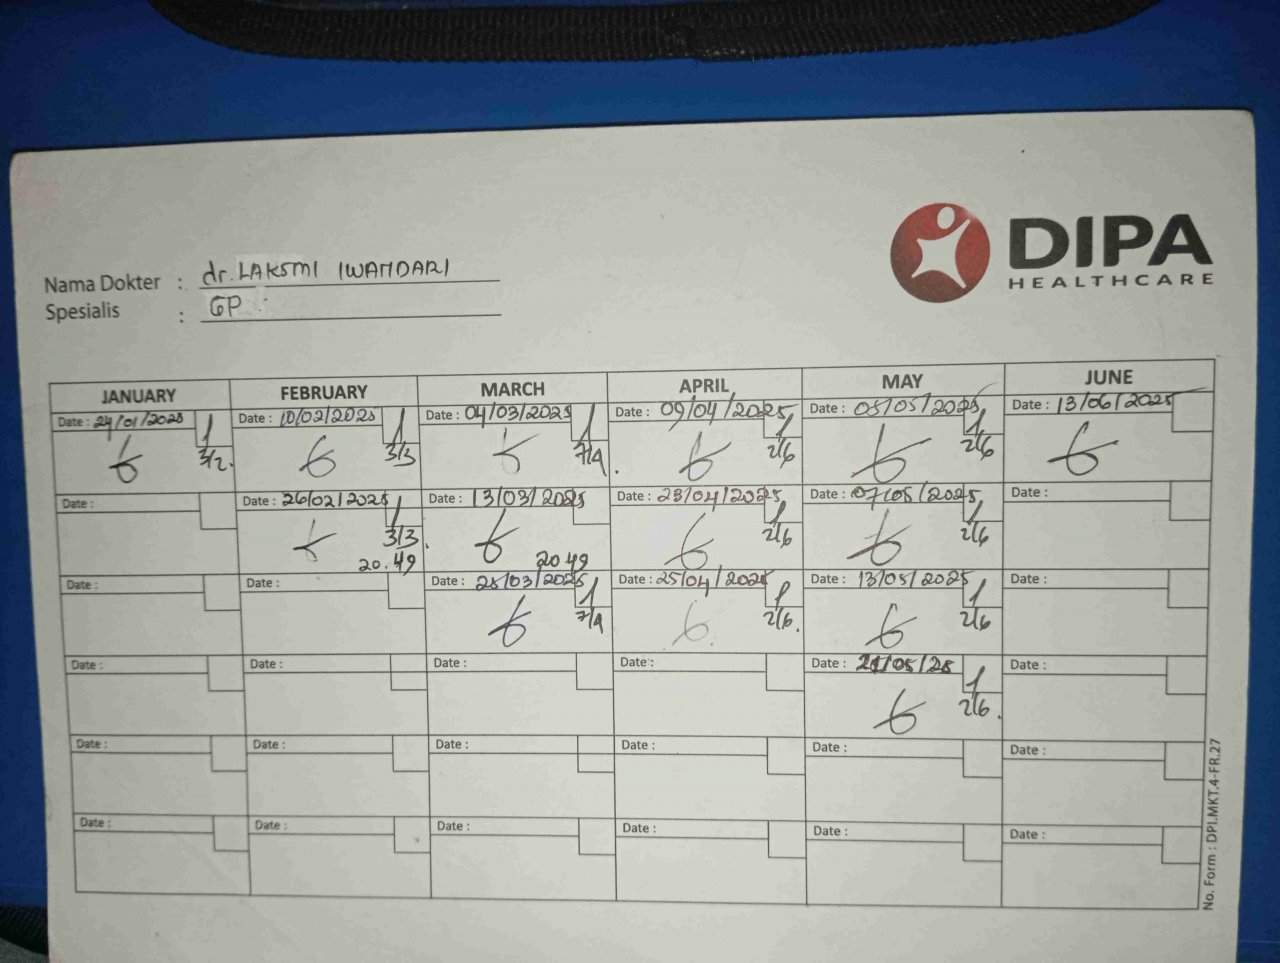 DIPA
HEALTHCARE
Nama Dokter : dr. LAKSMI IWANDARI
Spesialis : GP
JANUARY FEBRUARY MARCH APRIL MAY JUNE
Date : 24/01/2025 Date : 10/02/2025 Date : 04/03/2025 Date : 09/04/2025 Date : 05/05/2025 Date : 13/06/2025
3/2. 3/3 7/4 2/6 2/6
Date : Date : 26/02/2025 Date : 13/03/2025 Date : 23/04/2025 Date : 07/05/2025 Date :
3/3 2/6 2/6
20.49 20.49
Date : Date : Date : 25/03/2025 Date : 25/04/2025 Date : 13/05/2025 Date :
7/4 2/6. 2/6
Date : Date : Date : Date : Date : 21/05/25 Date :
2/6.
Date : Date : Date : Date : Date : Date :
Date : Date : Date : Date : Date : Date :
No. Form : DPI.MKT.4-FR.27